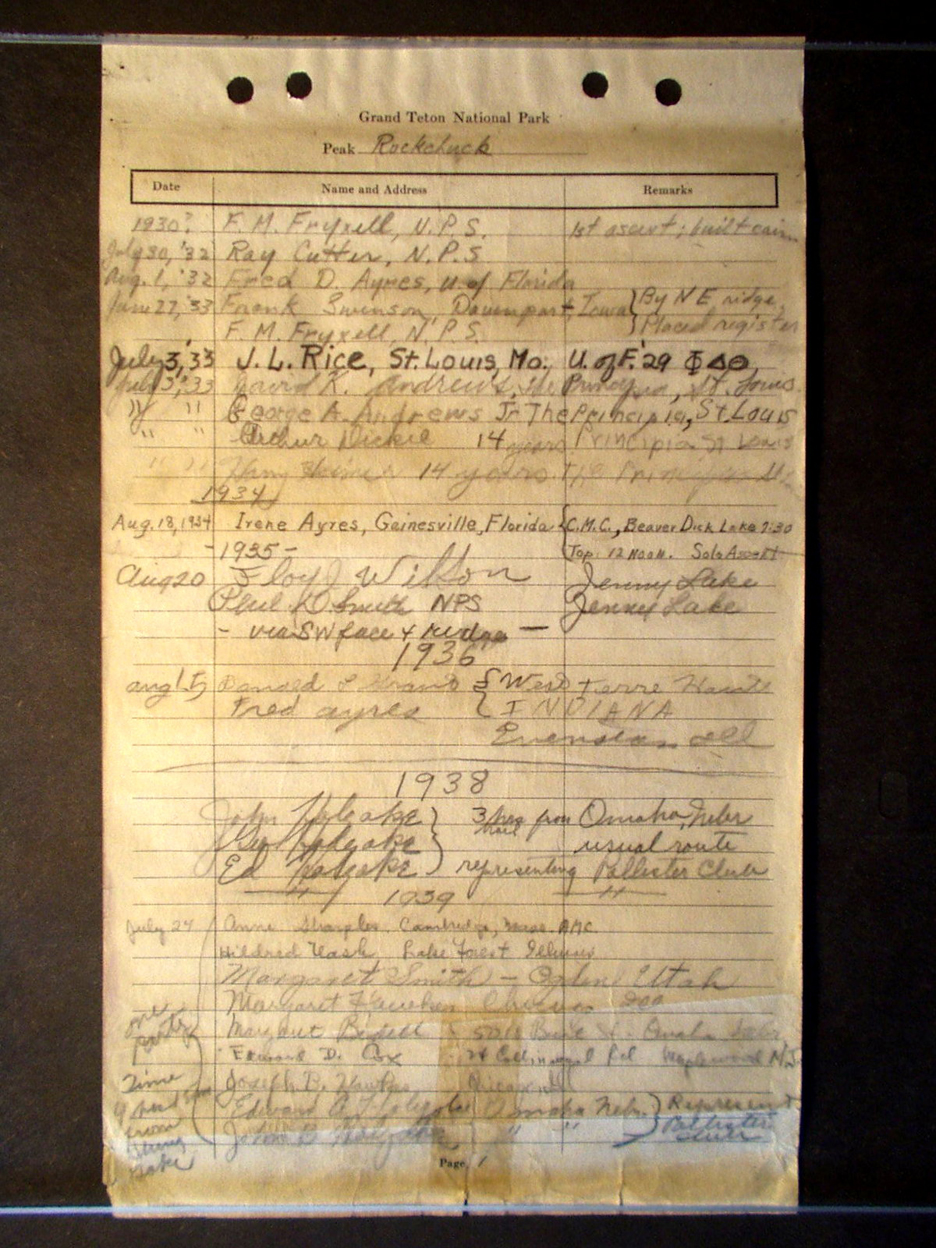 Grand Teton National Park
Peak Rockchuck
Date Name and Address Remarks
1930? F. M. Fryxell, N.P.S. 1st ascent; built cairn
July 30, '32 Ray Cutter, N.P.S
Aug. 1, '32 Fred D. Ayres, U. of Florida
June 27, '33 Frank Swenson, Davenport, Iowa } By NE ridge,
F. M. Fryxell N.P.S. } Placed register
July 3, '33 J. L. Rice, St. Louis, Mo. U. of F. '29 ΦΔΘ
July 3, '33 David K. Andrews, The Principia, St. Louis
" " George A. Andrews Jr The Principia, St Louis
" " Arthur Dickie 14 years Principia St Louis
" " 14 years The Principia St.
1934
Aug. 18, 1934 Irene Ayres, Gainesville, Florida { C.M.C., Beaver Dick Lake 7:30
- 1935 - Top 12 Noon. Solo Ascent
Aug 20 Floyd Wilson Jenny Lake
Phil D Smith NPS Jenny Lake
- via SW face & ridge -
1936
Aug 15 Donald { West Terre Haute
Fred Ayres { INDIANA
Evanston Ill
1938
John Holyoke } 3 hrs from Omaha, Nebr
Geo Holyoke } usual route
Ed Holyoke } representing Pallister Club
" 1939 "
July 24 Anne Sharples, Cambridge, Mass. AMC
Mildred Lake Forest Illinois
Margaret Smith - Ogden Utah
Margaret Chicago Ill
one Margaret Omaha Nebr
party Edward D. Cox Maplewood N.J.
Time Joseph B. Hawkes Chicago, Ill
4 hrs Edward A. Holyoke Omaha Nebr. } Represent
from John Holyoke " " } Pallister
String Club
Lake
Page 1